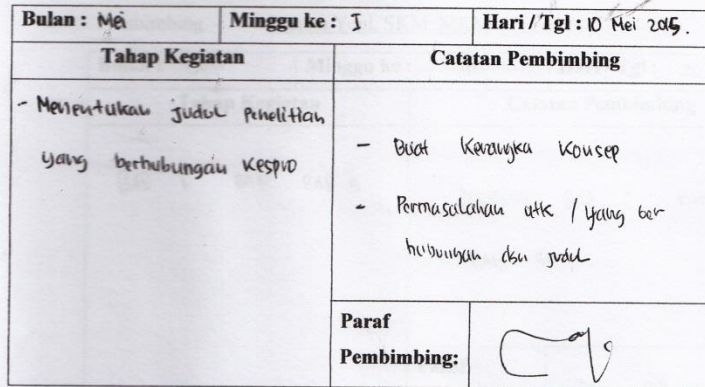 Bulan : Mei Minggu ke : I Hari / Tgl : 10 Mei 2015.
Tahap Kegiatan Catatan Pembimbing
- Menentukan judul penelitian
yang berhubungan KESPRO
- Buat Kerangka Konsep
- Permasalahan utk / yang ber
hubungan dgn judul
Paraf
Pembimbing: